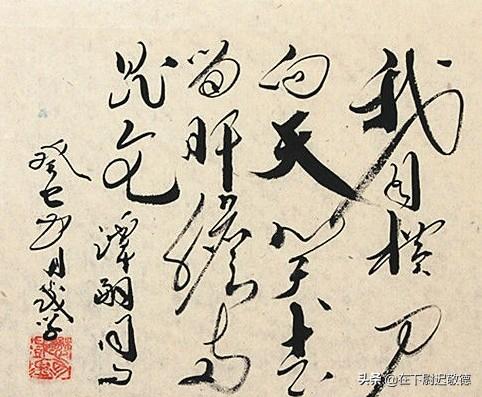 我自横刀
向天笑去
留肝膽两
昆仑
譚嗣同句
癸巳五月
头条 @在下尉迟敬德